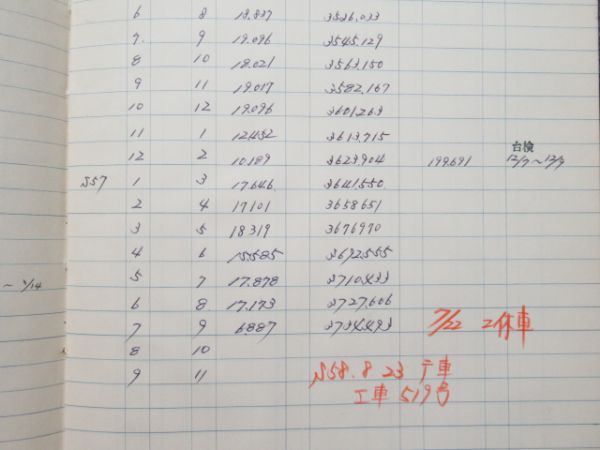 6 8 18.837 3526.033
7 9 19.096 3545.129
8 10 18.021 3563.150
9 11 19.017 3582.167
10 12 19.096 3601.263
11 1 12.452 3613.715
台検
12 2 10.189 3623.904 199.691 12/7~12/9
S57 1 3 17.646 3641.550
2 4 17101 3658651
3 5 18319 3676970
4 6 15.585 3692.555
5 7 17.878 3710.433
~ 7/14
6 8 17.173 3727.606
7 9 6.887 3734.493 7/22 2休車
8 10
9 11 S58.8 23 車
工車 519号